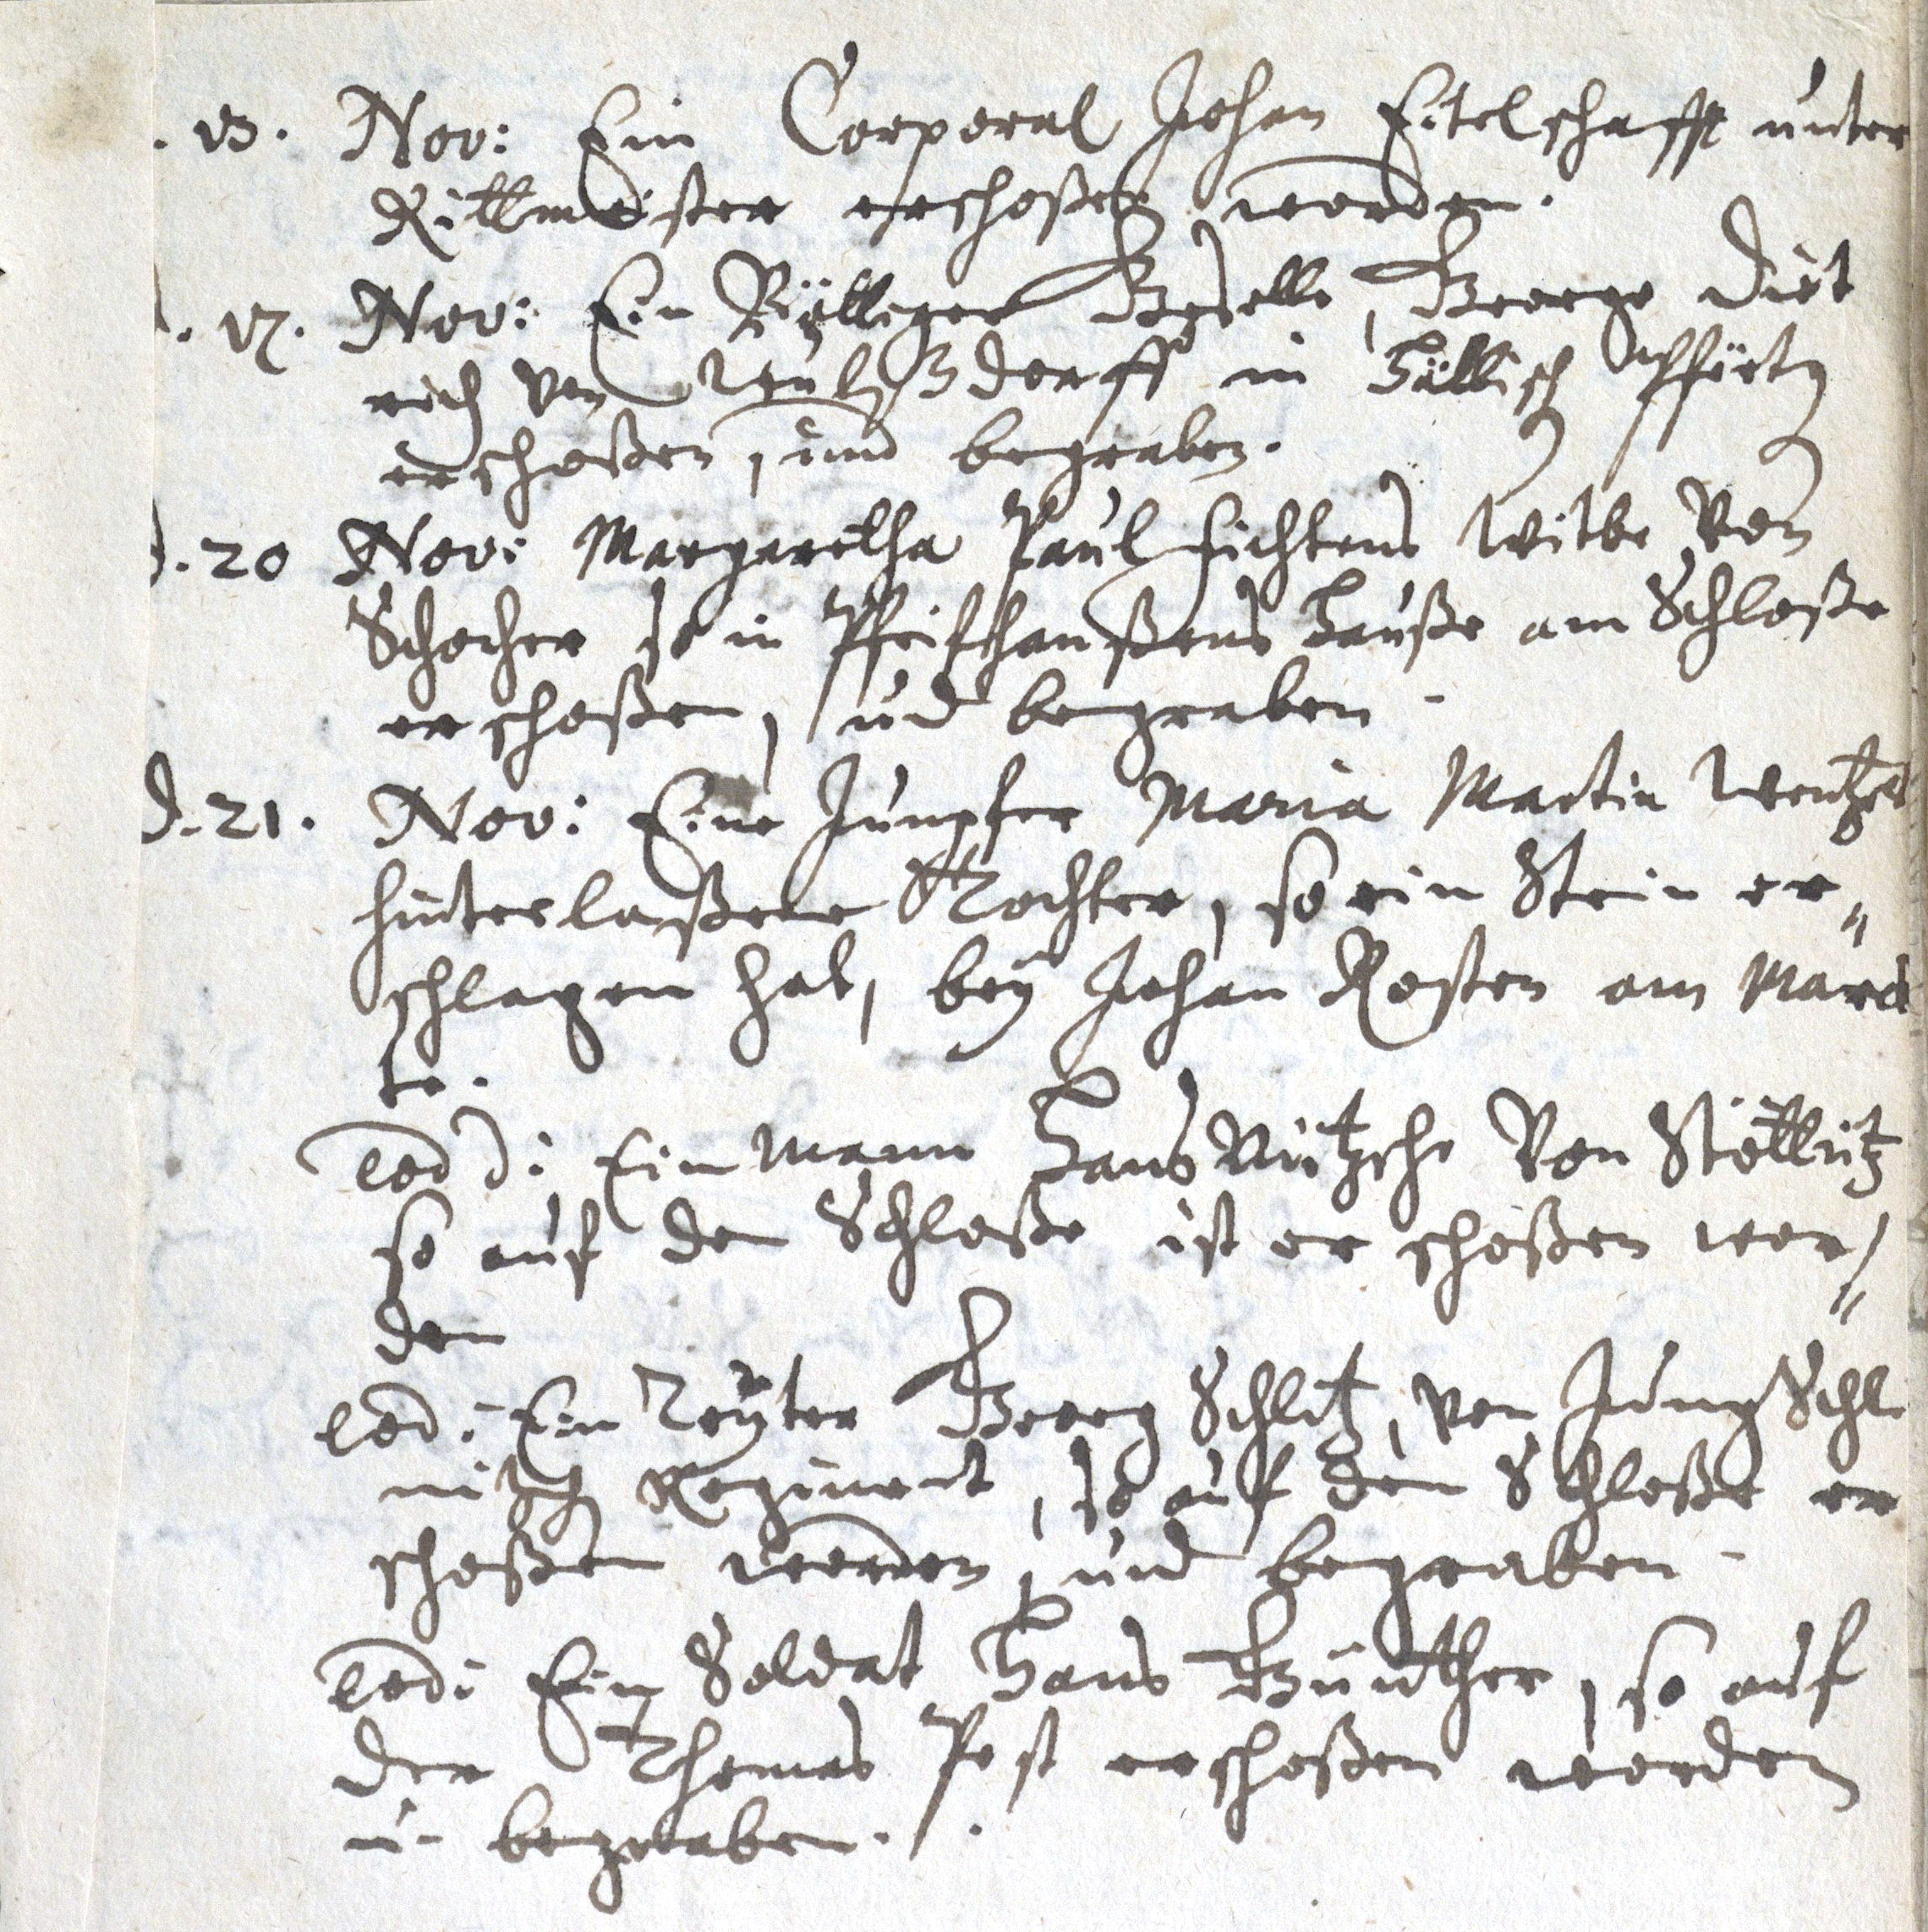 . 13. Nov: Ein Corporal Johan Eitelschafft unter
Rittmeister erschoßen worden.
d. 17. Nov: Ein Böttiger Geselle, George Diet
rich von in Hällisch Pförtg
erschoßen, und begraben.
d. 20 Nov: Margaretha Paul Fichtens Witbe Von
Schocher so in Hauße am Schloße
erschoßen, und begraben -
d. 21. Nov: Eine Jungfer Maria Martin Wentzels
hinterlaßene Tochter, so ein Stein er„
schlagen hat, bey Johan Rosten am Marck
te.
eod d: Ein Mann Hans Nützsche Von Stötteritz
so auf dem Schloße ist erschoßen wor„
den
eod: Ein Reyter Georg Schlitz, von Jung Schle
nitzsch Regiment, so auf dem Schloße er
schoßen worden, und begraben -
eod: Ein Soldat Hans Günther, so auf
der Thomas Post erschoßen worden
u. begraben.